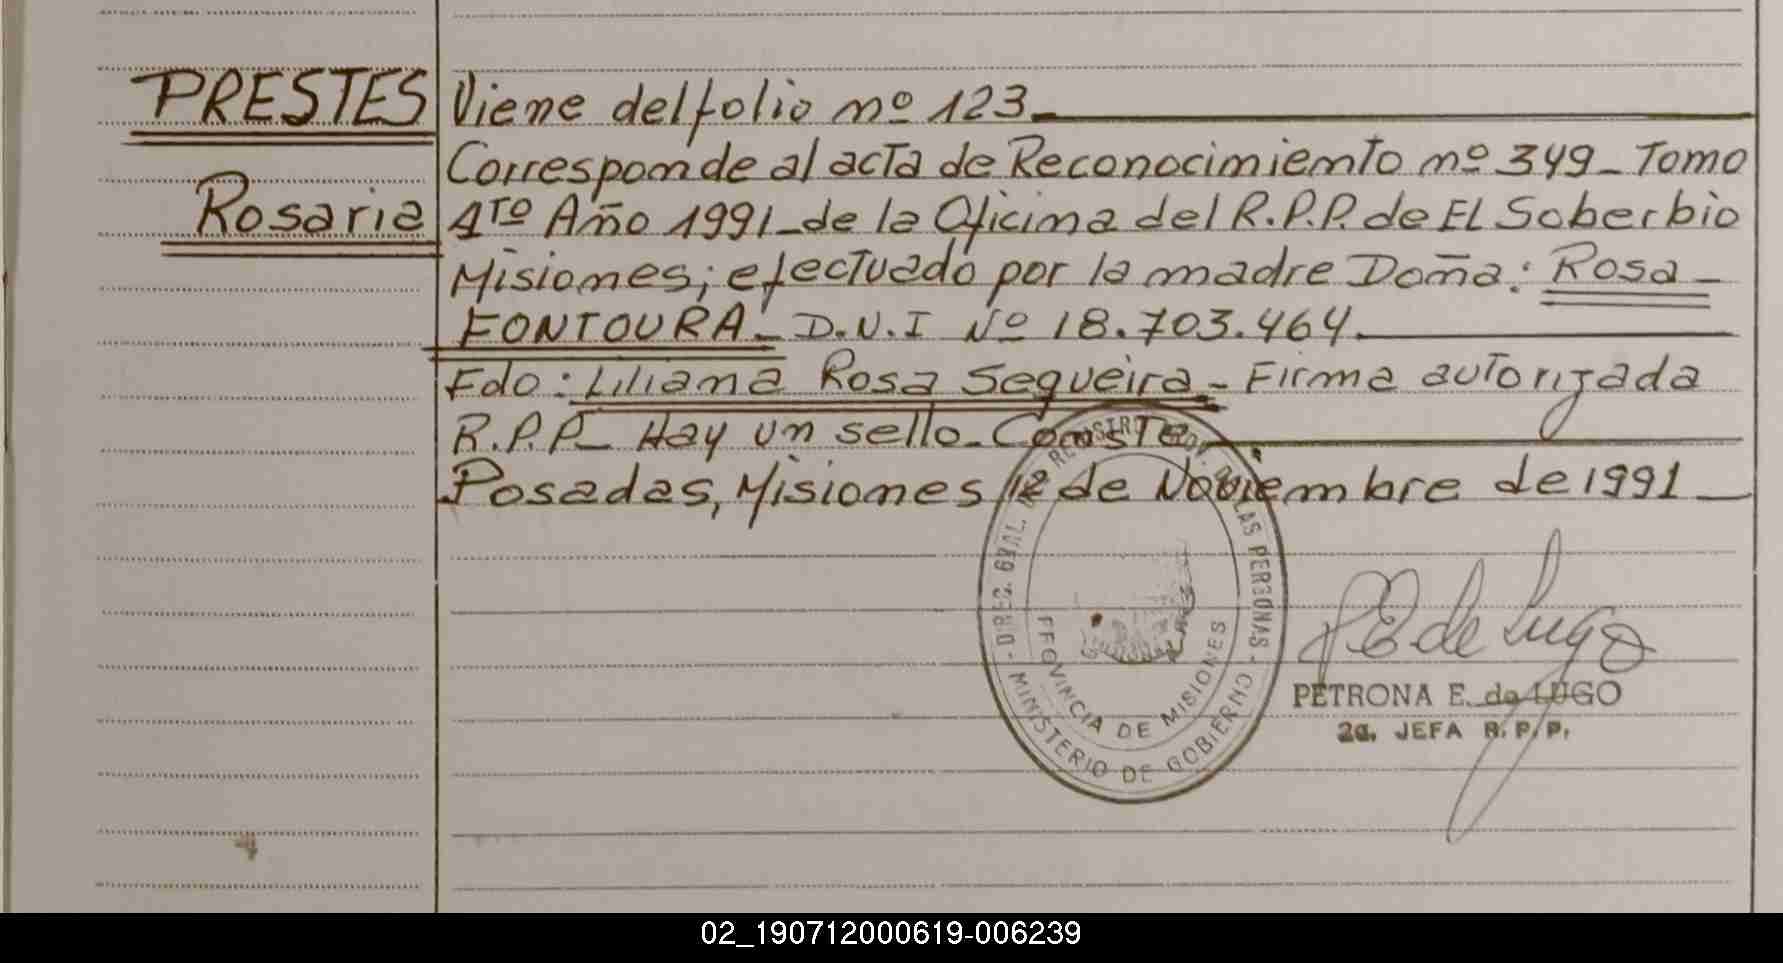 PRESTES
Rosaria
Viene del folio nº 123
Corresponde al acta de Reconocimiento nº 349 - Tomo
1ro Año 1991 - de la Oficina del R.P.P. de El Soberbio
Misiones; efectuado por la madre Doña: Rosa -
FONTOURA - D.N.I Nº 18.703.464.
Fdo: Liliana Rosa Sequeira - Firma autorizada
R.P.P - Hay un sello - Conste
Posadas, Misiones 12 de Noviembre de 1991
PROVINCIA DE MISIONES
MINISTERIO DE GOBIERNO
DE LAS PERSONAS
P E de Lugo
PETRONA E. de LUGO
2a. JEFA R.P.P.
02_190712000619-006239